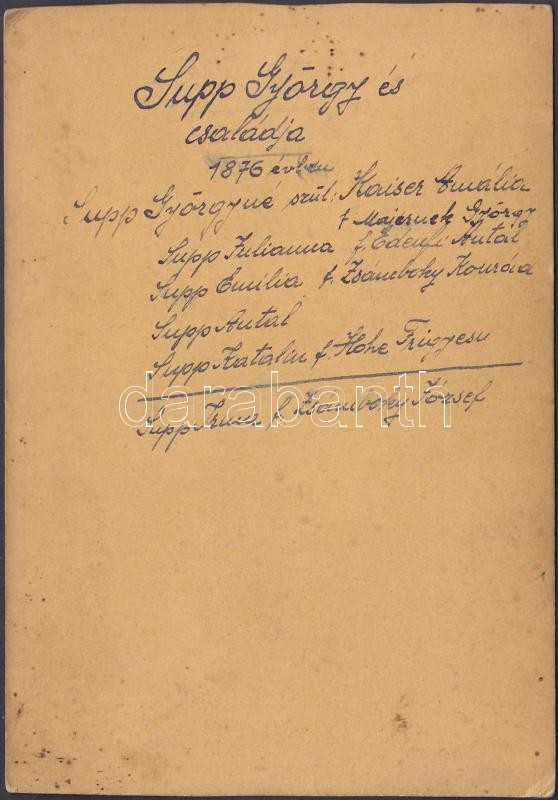 Supp György és
családja
1876 évben
Supp Györgyné szül: Kaiser Amália
f Majernek György
Supp Julianna f. Edenfi Antal
Supp Emilia f. Zsámboky Konrád
Supp Antal
Supp Katalin f. Hohe Frigyesn
darabanth
Supp Irma f Zsámboky József